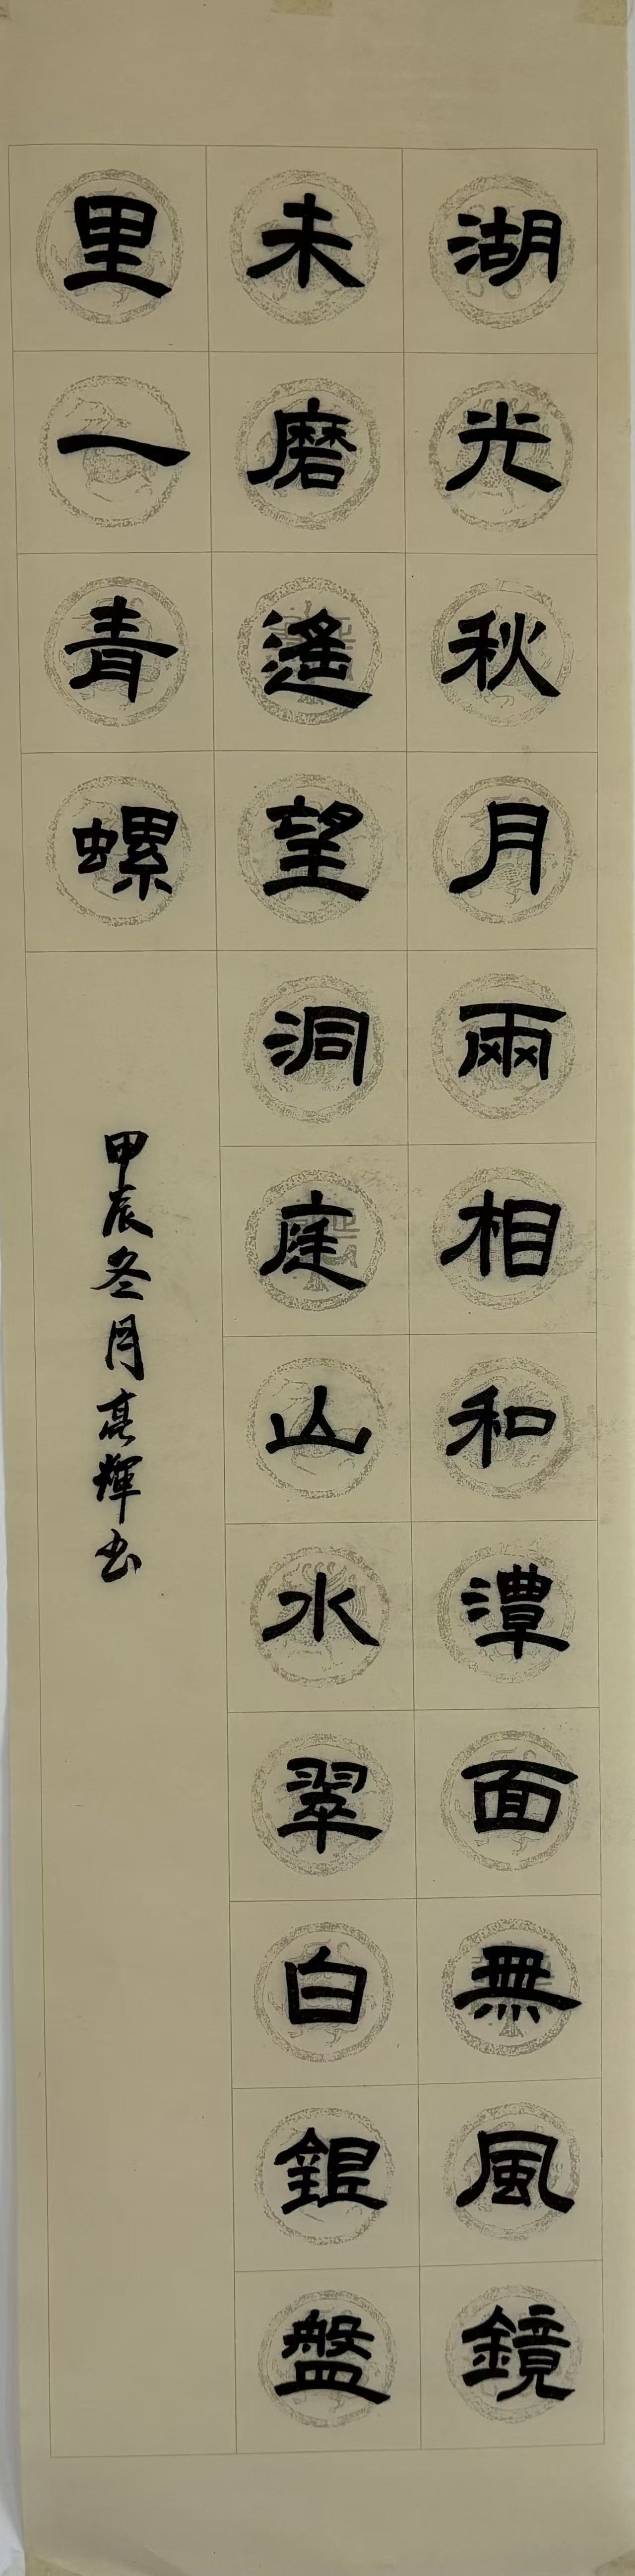 湖光秋月兩相和潭面無風鏡
未磨遙望洞庭山水翠白銀盤
里一青螺
甲辰冬月亮輝书